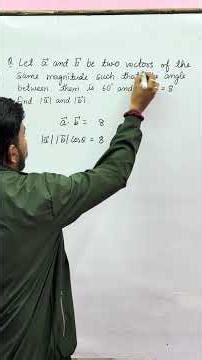 Q. Let a⃗ and b⃗ be two vectors of the
same magnitude such that the angle
between them is 60° and = 8
find |a⃗| and |b⃗|
a⃗ . b⃗ = 8
|a⃗| |b⃗| cosθ = 8